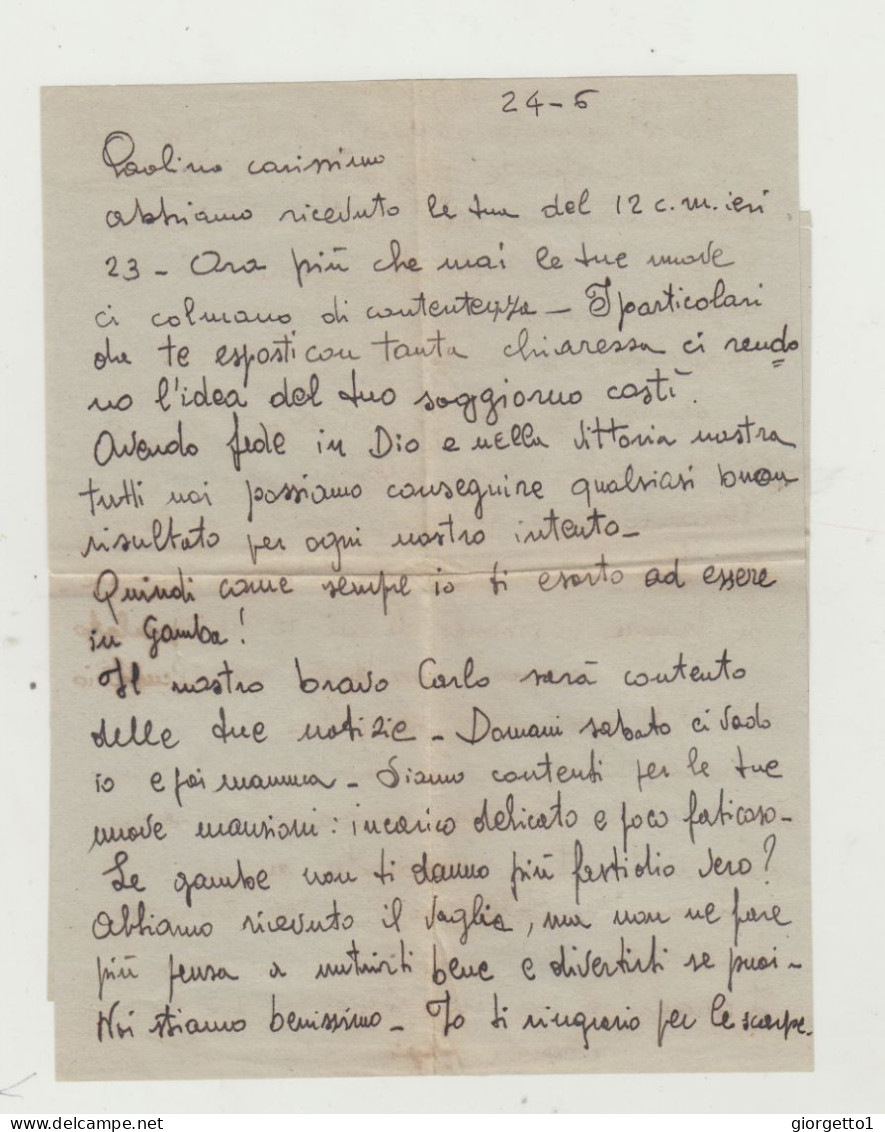 24-6
Paolino carissimo
abbiamo ricevuto la tua del 12 c.m. ieri
23 - Ora più che mai le tue nuove
ci colmano di contentezza - I particolari
che te esposti con tanta chiaressa ci rendo
no l'idea del tuo soggiorno costì.
Avendo fede in Dio e nella Vittoria nostra
tutti noi possiamo conseguire qualsiasi buon
risultato per ogni nostro intento -
Quindi come sempre io ti esorto ad essere
in gamba!
Il nostro bravo Carlo sarà contento
delle tue notizie - Domani sabato ci vado
io e poi mamma - Siamo contenti per le tue
nuove mansioni: incarico delicato e poco faticoso -
Le gambe non ti danno più fastidio vero?
Abbiamo ricevuto il Vaglia, ma non ne fare
più pensa a nutrirti bene e divertirti se puoi -
Noi stiamo benissimo - Io ti ringrazio per le scarpe.
delcampe.net
giorgetto1